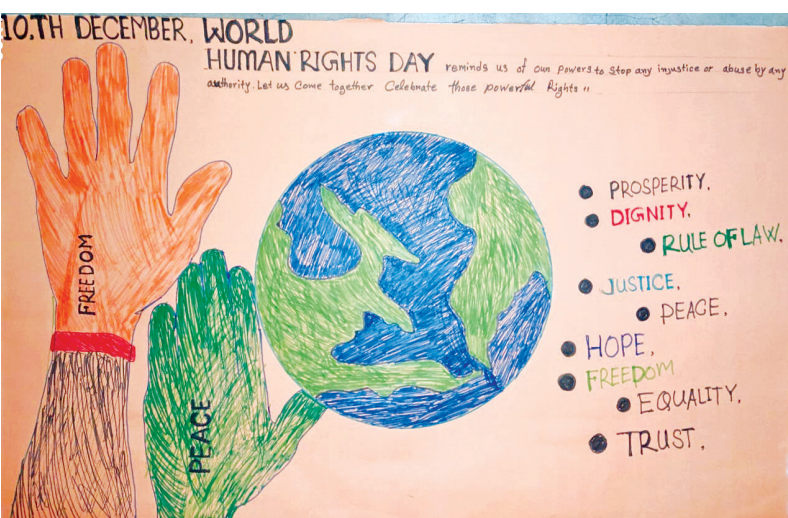 10.TH DECEMBER, WORLD
HUMAN RIGHTS DAY reminds us of our powers to stop any injustice or abuse by any
authority. Let us come together Celebrate those powerful Rights "
FREEDOM
PEACE
PROSPERITY,
DIGNITY,
RULE OF LAW.
JUSTICE,
PEACE,
HOPE,
FREEDOM
EQUALITY,
TRUST,